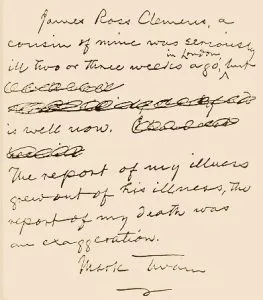 James Ross Clemens, a
cousin of mine was seriously
ill two or three weeks ago, in London, but
is well now.
The report of my illness
grew out of his illness, the
report of my death was
an exaggeration.
Mark Twain